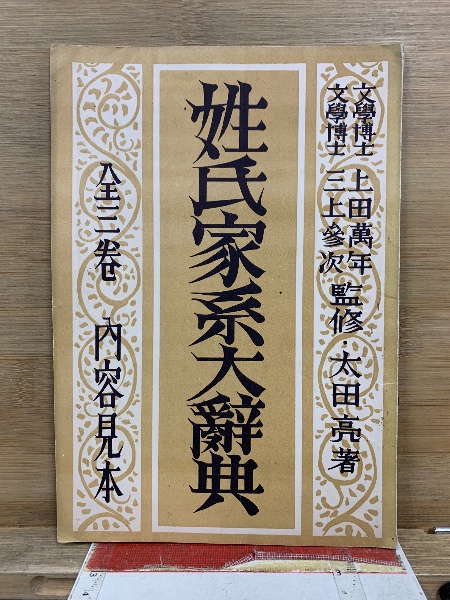 文學博士 上田萬年
文學博士 三上參次 監修・太田亮著
姓氏家系大辭典
全三卷 內容見本